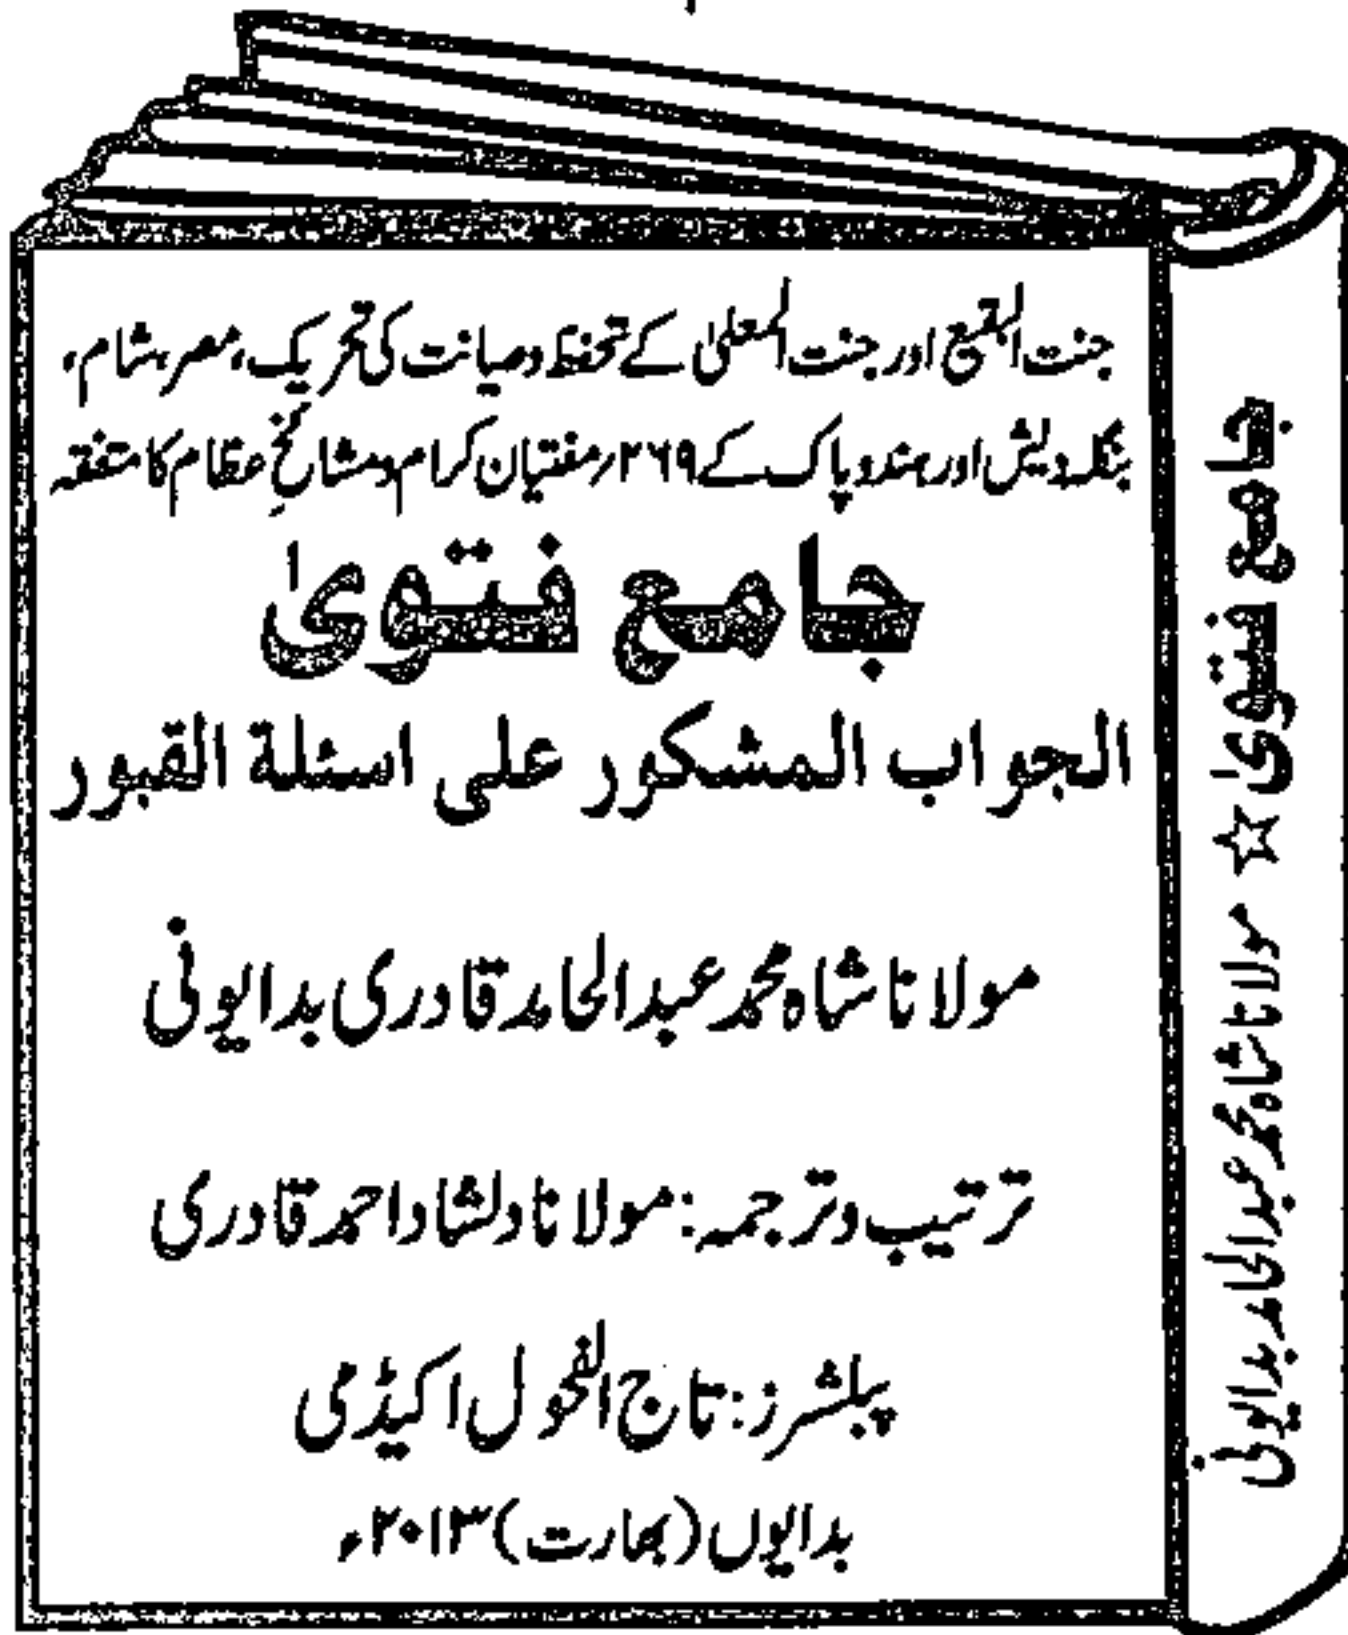 جنت البقیع اور جنت المعلیٰ کے تحفظ وصیانت کی تحریک، مصر، شام،
بنگلہ دیش اور ہند و پاک کے ۲۶۹/مفتیان کرام و مشائخِ عظام کا متفقہ
جامع فتویٰ
الجواب المشکور علی اسئلة القبور
مولانا شاہ محمد عبدالحامد قادری بدایونی
ترتیب وترجمہ: مولانا دلشاد احمد قادری
پبلشرز: تاج الفحول اکیڈمی
بدایوں (بھارت) ۲۰۱۳ء
جامع فتویٰ ☆ مولانا شاہ محمد عبدالحامد بدایونی